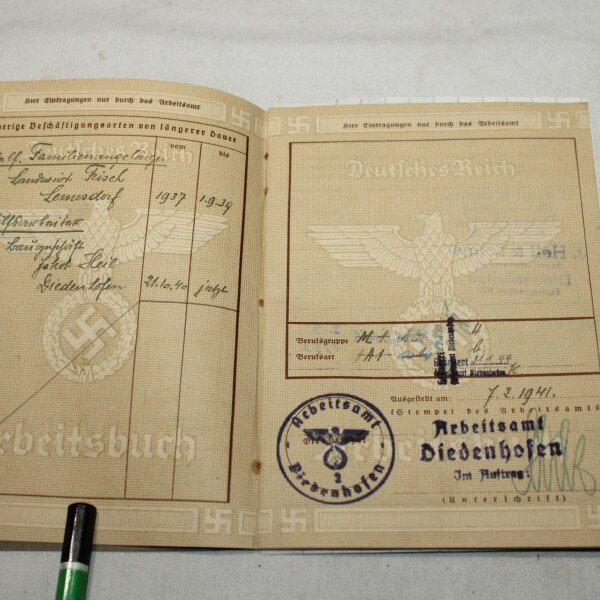 Hier Eintragungen nur durch das Arbeitsamt
herige Beschäftigungsarten von längerer Dauer
vom bis
Deutsches Reich
Familienangehöriger
Landwirt Frisch
1937 1.9.39
Hilfsarbeiter
Baugeschäft
Jakob Heil
Diedenhofen 21.10.40 jetzt
Arbeitsbuch
Hier Eintragungen nur durch das Arbeitsamt
Deutsches Reich
Berufsgruppe
Berufsart
Ausgestellt am: 7.2.1941.
(Stempel des Arbeitsamts
Arbeitsamt
Diedenhofen
Im Auftrag:
(Unterschrift)
Arbeitsamt
2
Diedenhofen